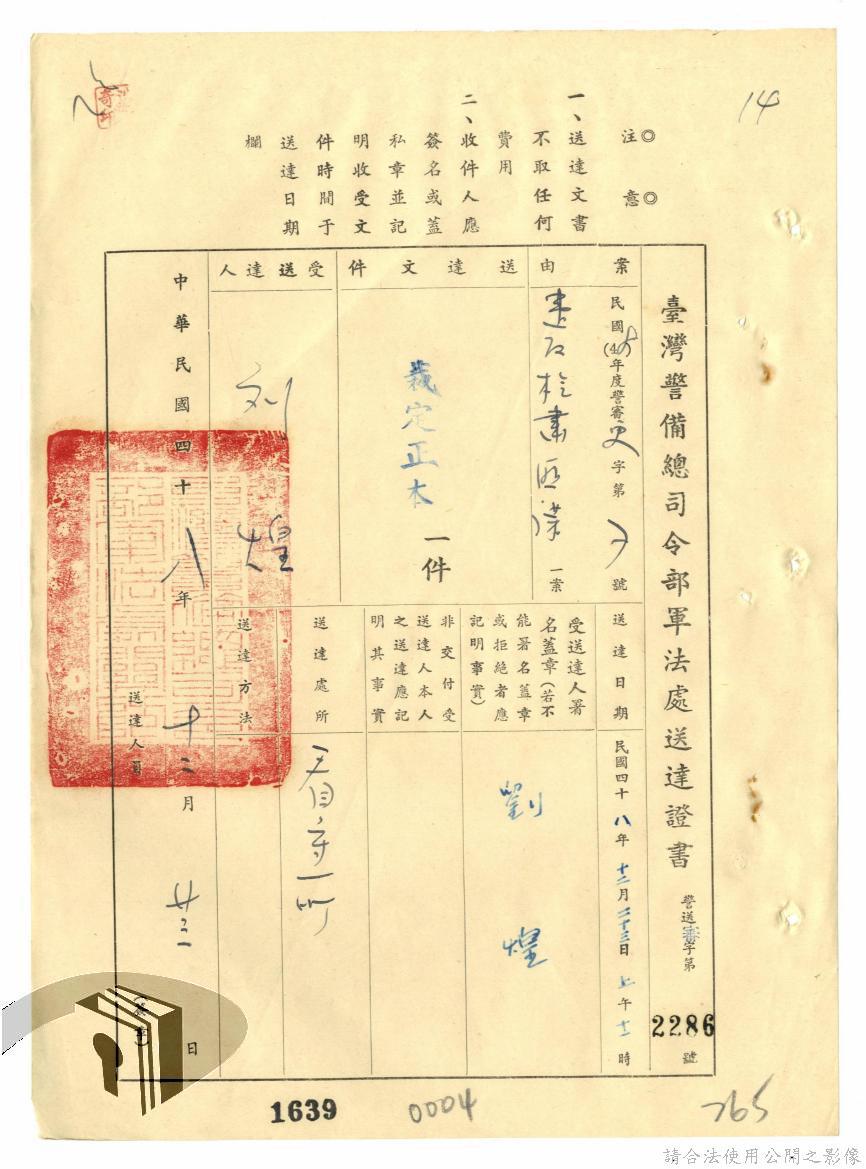 14
◎注
◎意
一、送達文書
不取任何
費用
二、收件人應
簽名或蓋
私章並記
明收受文
件時間于
送達日期
欄
臺灣警備總司令部軍法處送達證書
警送審字第
2286
號
案由
民國(4 年度警審更字第 號
一案
送達文件
裁定正本
一件
受送達人
刘煌
送達日期
民國四十八年十二月二十三日上午十二時
受送達人署
名蓋章(若不
能署名蓋章
或拒絕者應
記明事實)
劉煌
非交付受
送達人本人
之送達應記
明其事實
送達處所
看守所
送達方法
中華民國四十八年十二月廿三日
送達人員
1639
0004
265
請合法使用公開之影像